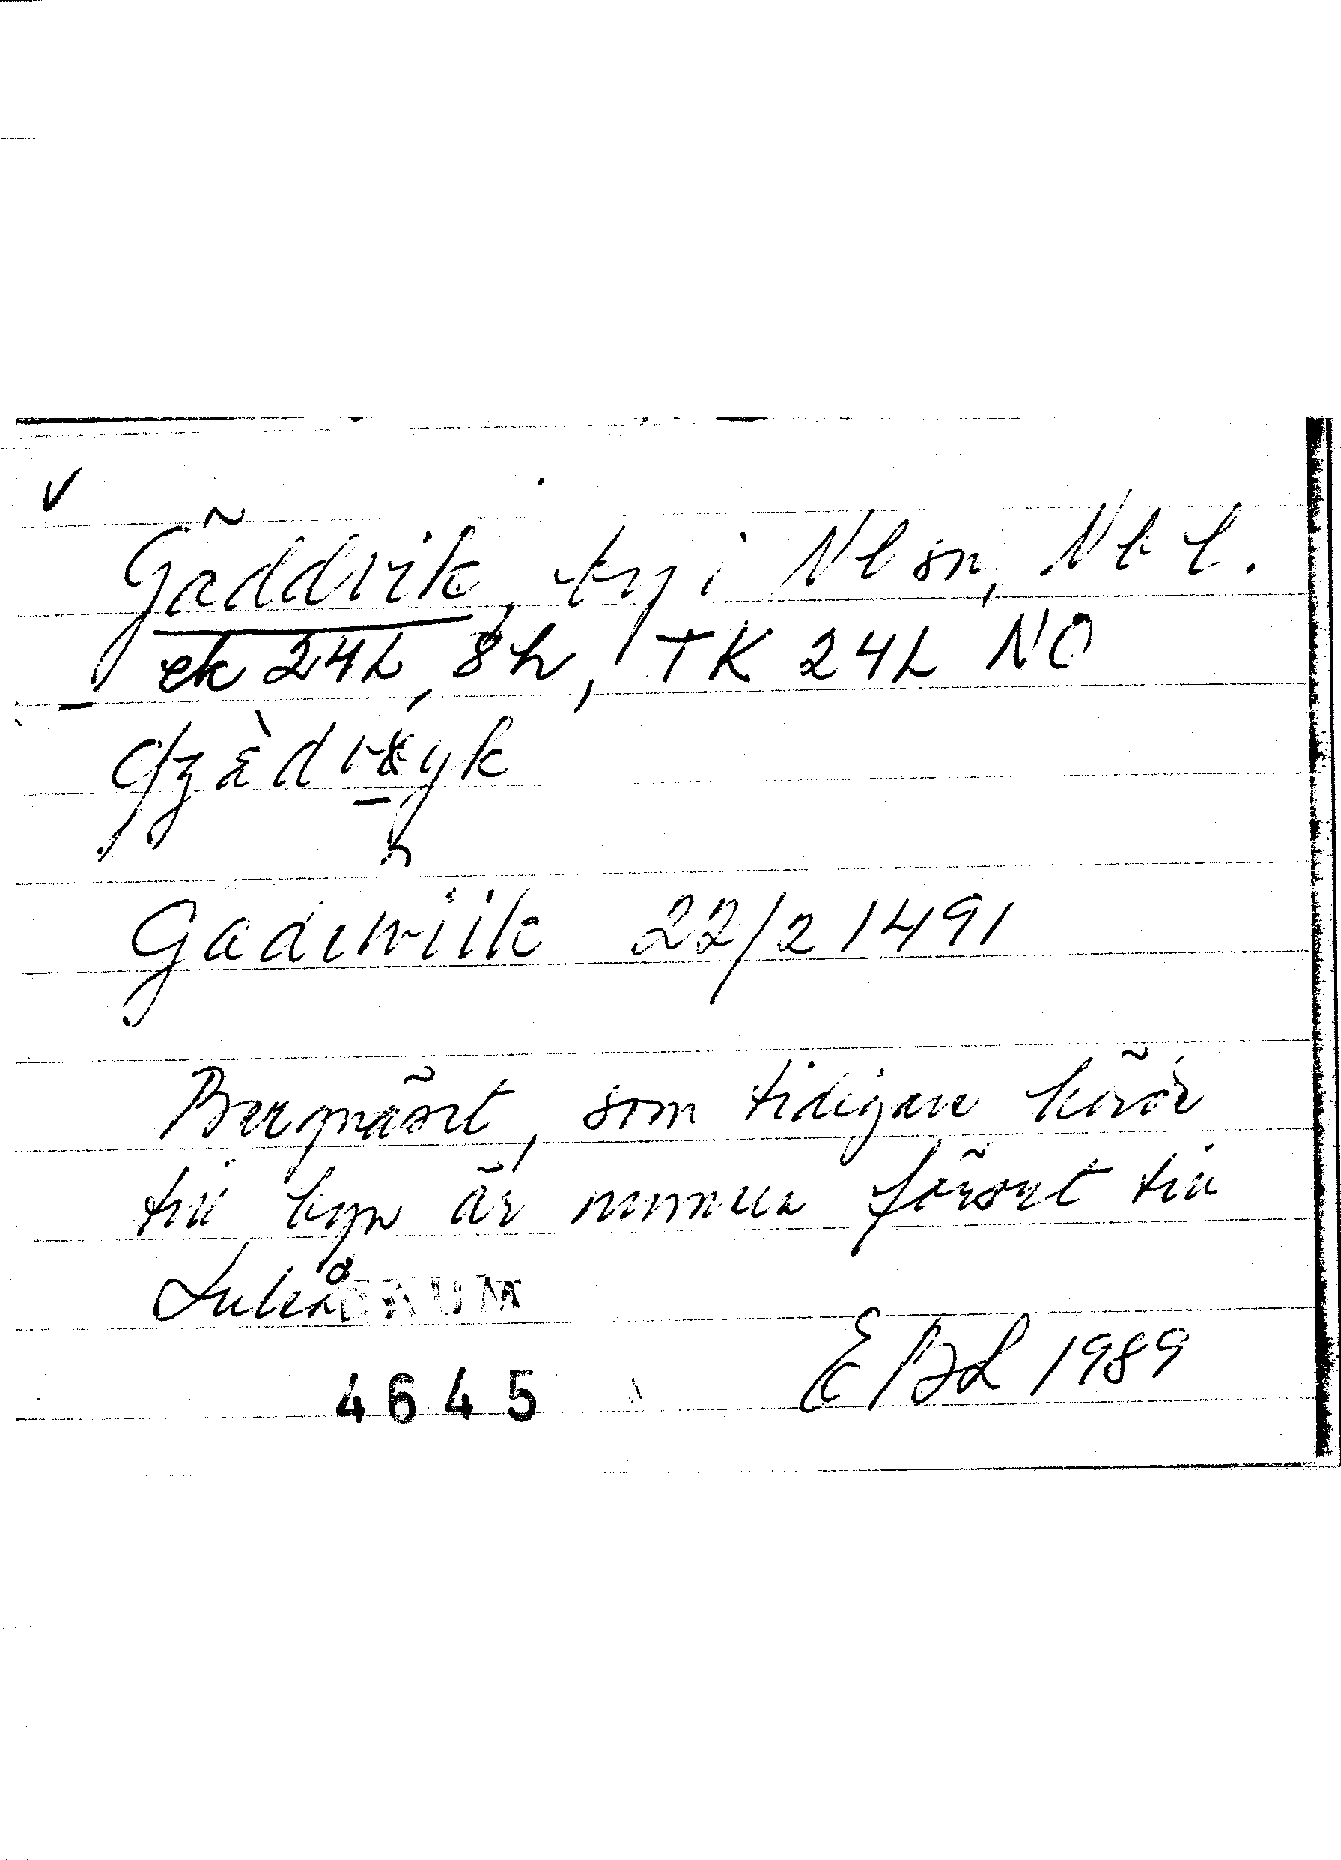 ✓
Gäddvik, by i Nl sn, Nb l.
ek 24L, 8h, TK 24L NO
Gadewiik 22/2 1491
Bergnäset, som tidigare hörde
till byn är numera försat till
Luleå
4645
EBL 1989